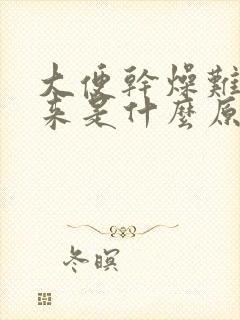 大便幹燥難
來是什麼原
冬暝